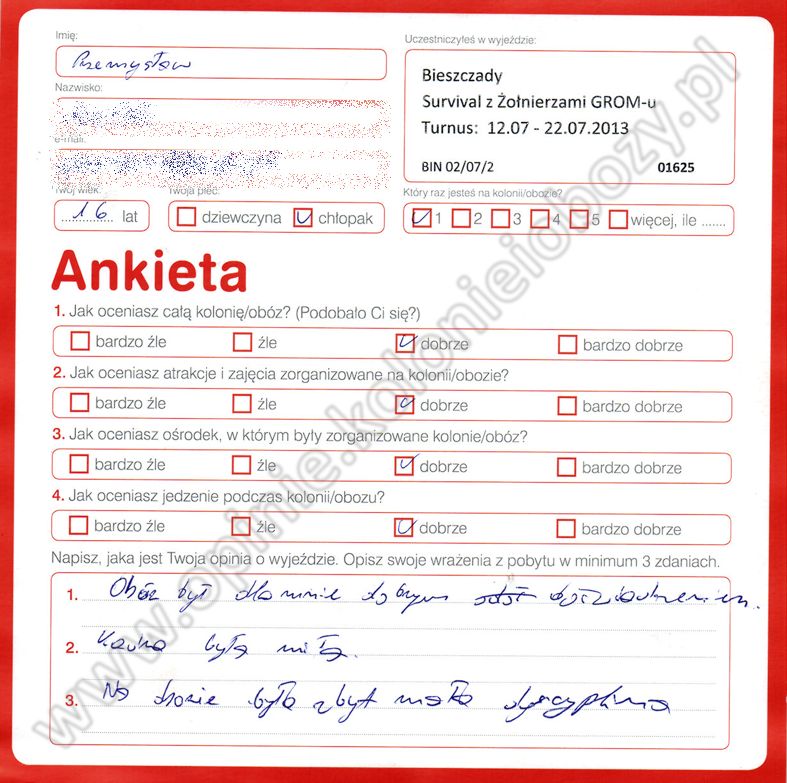 Imię:
Przemysław
Nazwisko:
e-mail:
Twój wiek:
16 lat
Twoja płeć:
dziewczyna chłopak
Uczestniczyłeś w wyjeździe:
Bieszczady
Survival z Żołnierzami GROM-u
Turnus: 12.07 - 22.07.2013
BIN 02/07/2 01625
Który raz jesteś na kolonii/obozie?
1 2 3 4 5 więcej, ile .......
Ankieta
1. Jak oceniasz całą kolonię/obóz? (Podobało Ci się?)
bardzo źle źle dobrze bardzo dobrze
2. Jak oceniasz atrakcje i zajęcia zorganizowane na kolonii/obozie?
bardzo źle źle dobrze bardzo dobrze
3. Jak oceniasz ośrodek, w którym były zorganizowane kolonie/obóz?
bardzo źle źle dobrze bardzo dobrze
4. Jak oceniasz jedzenie podczas kolonii/obozu?
bardzo źle źle dobrze bardzo dobrze
Napisz, jaka jest Twoja opinia o wyjeździe. Opisz swoje wrażenia z pobytu w minimum 3 zdaniach.
1. Obóz był dla mnie dobrym doświadczeniem.
2. Kadra była miła.
3. Na obozie była zbyt mała dyscyplina
www.opinie.kolonieiobozy.pl